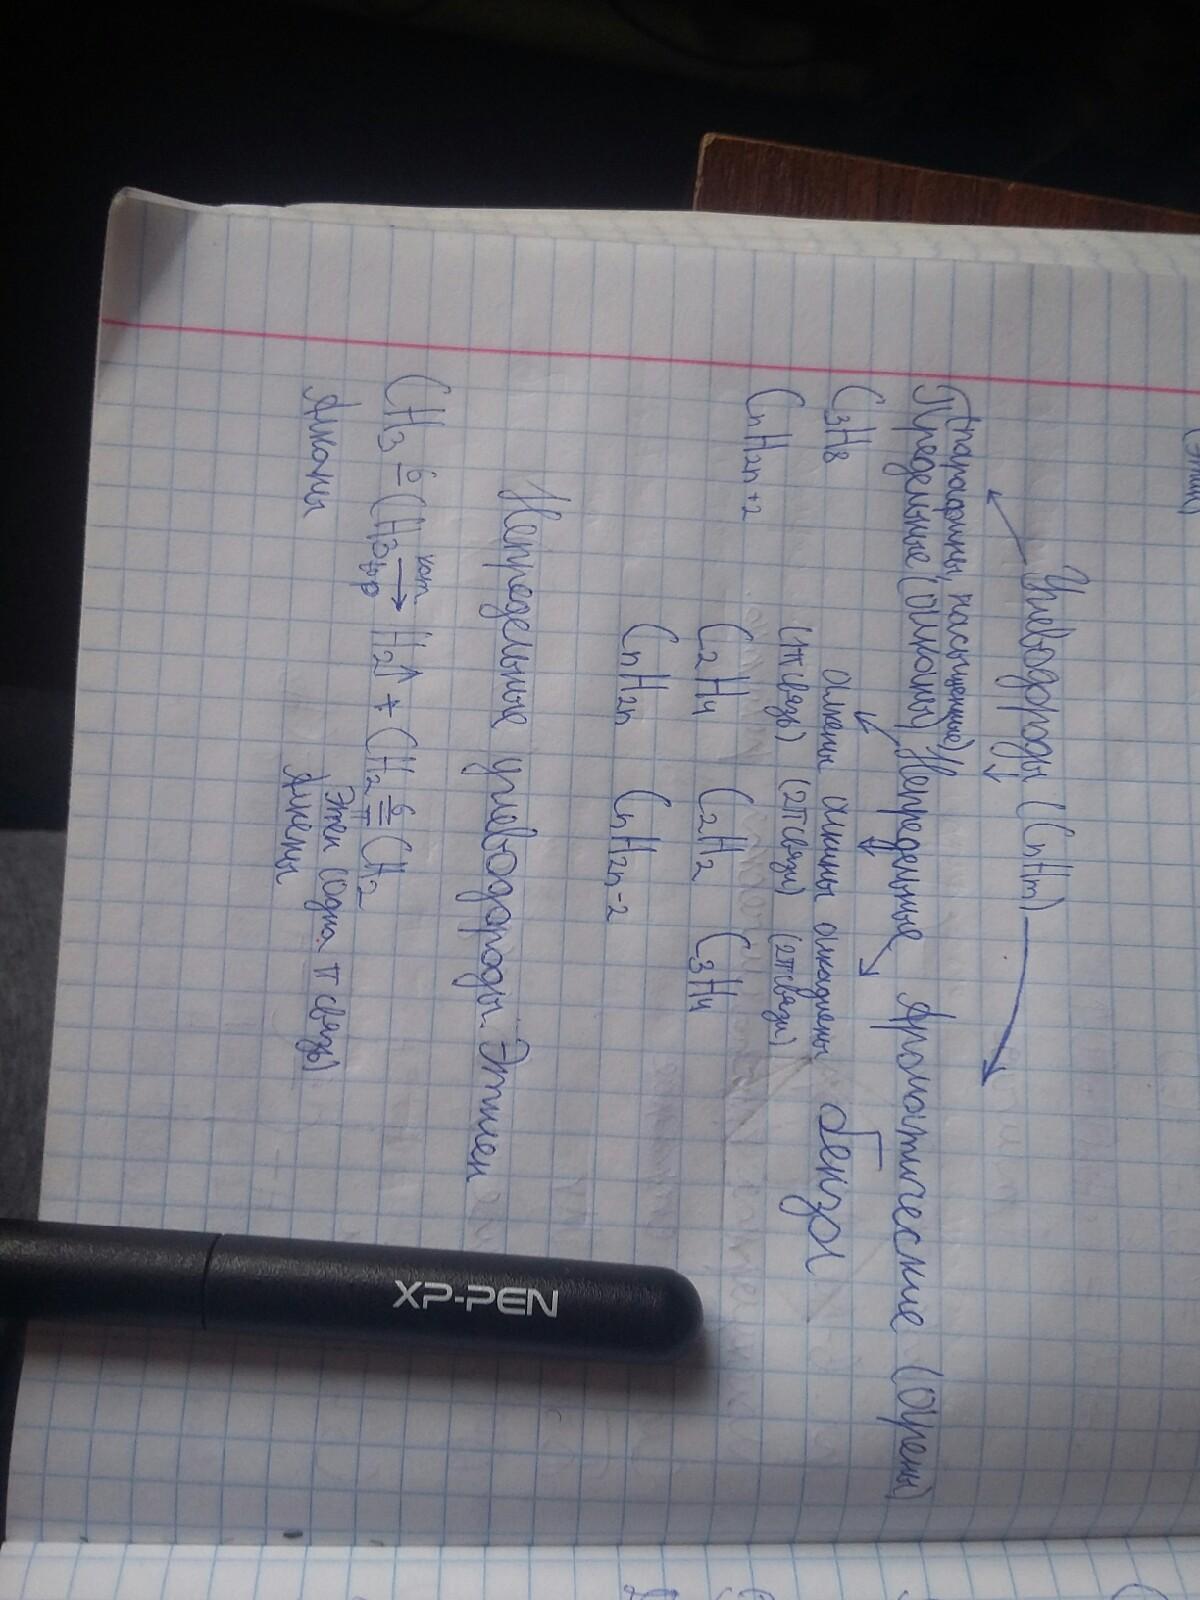 Углеводороды (CnHm)
(парафины, насыщенные)
Предельные (алканы) Непредельные Ароматические (арены)
C3H8 алкены алкины алкадиены бензол
(1π связь) (2π связи) (2π связи)
CnH2n+2 C2H4 C2H2 C3H4
CnH2n CnH2n-2
Непредельные углеводороды. Этилен
кат.
CH3 б CH3 t,p → H2↑ + CH2 б π CH2
Алканы Этен (одна π связь)
Алкены
XP-PEN